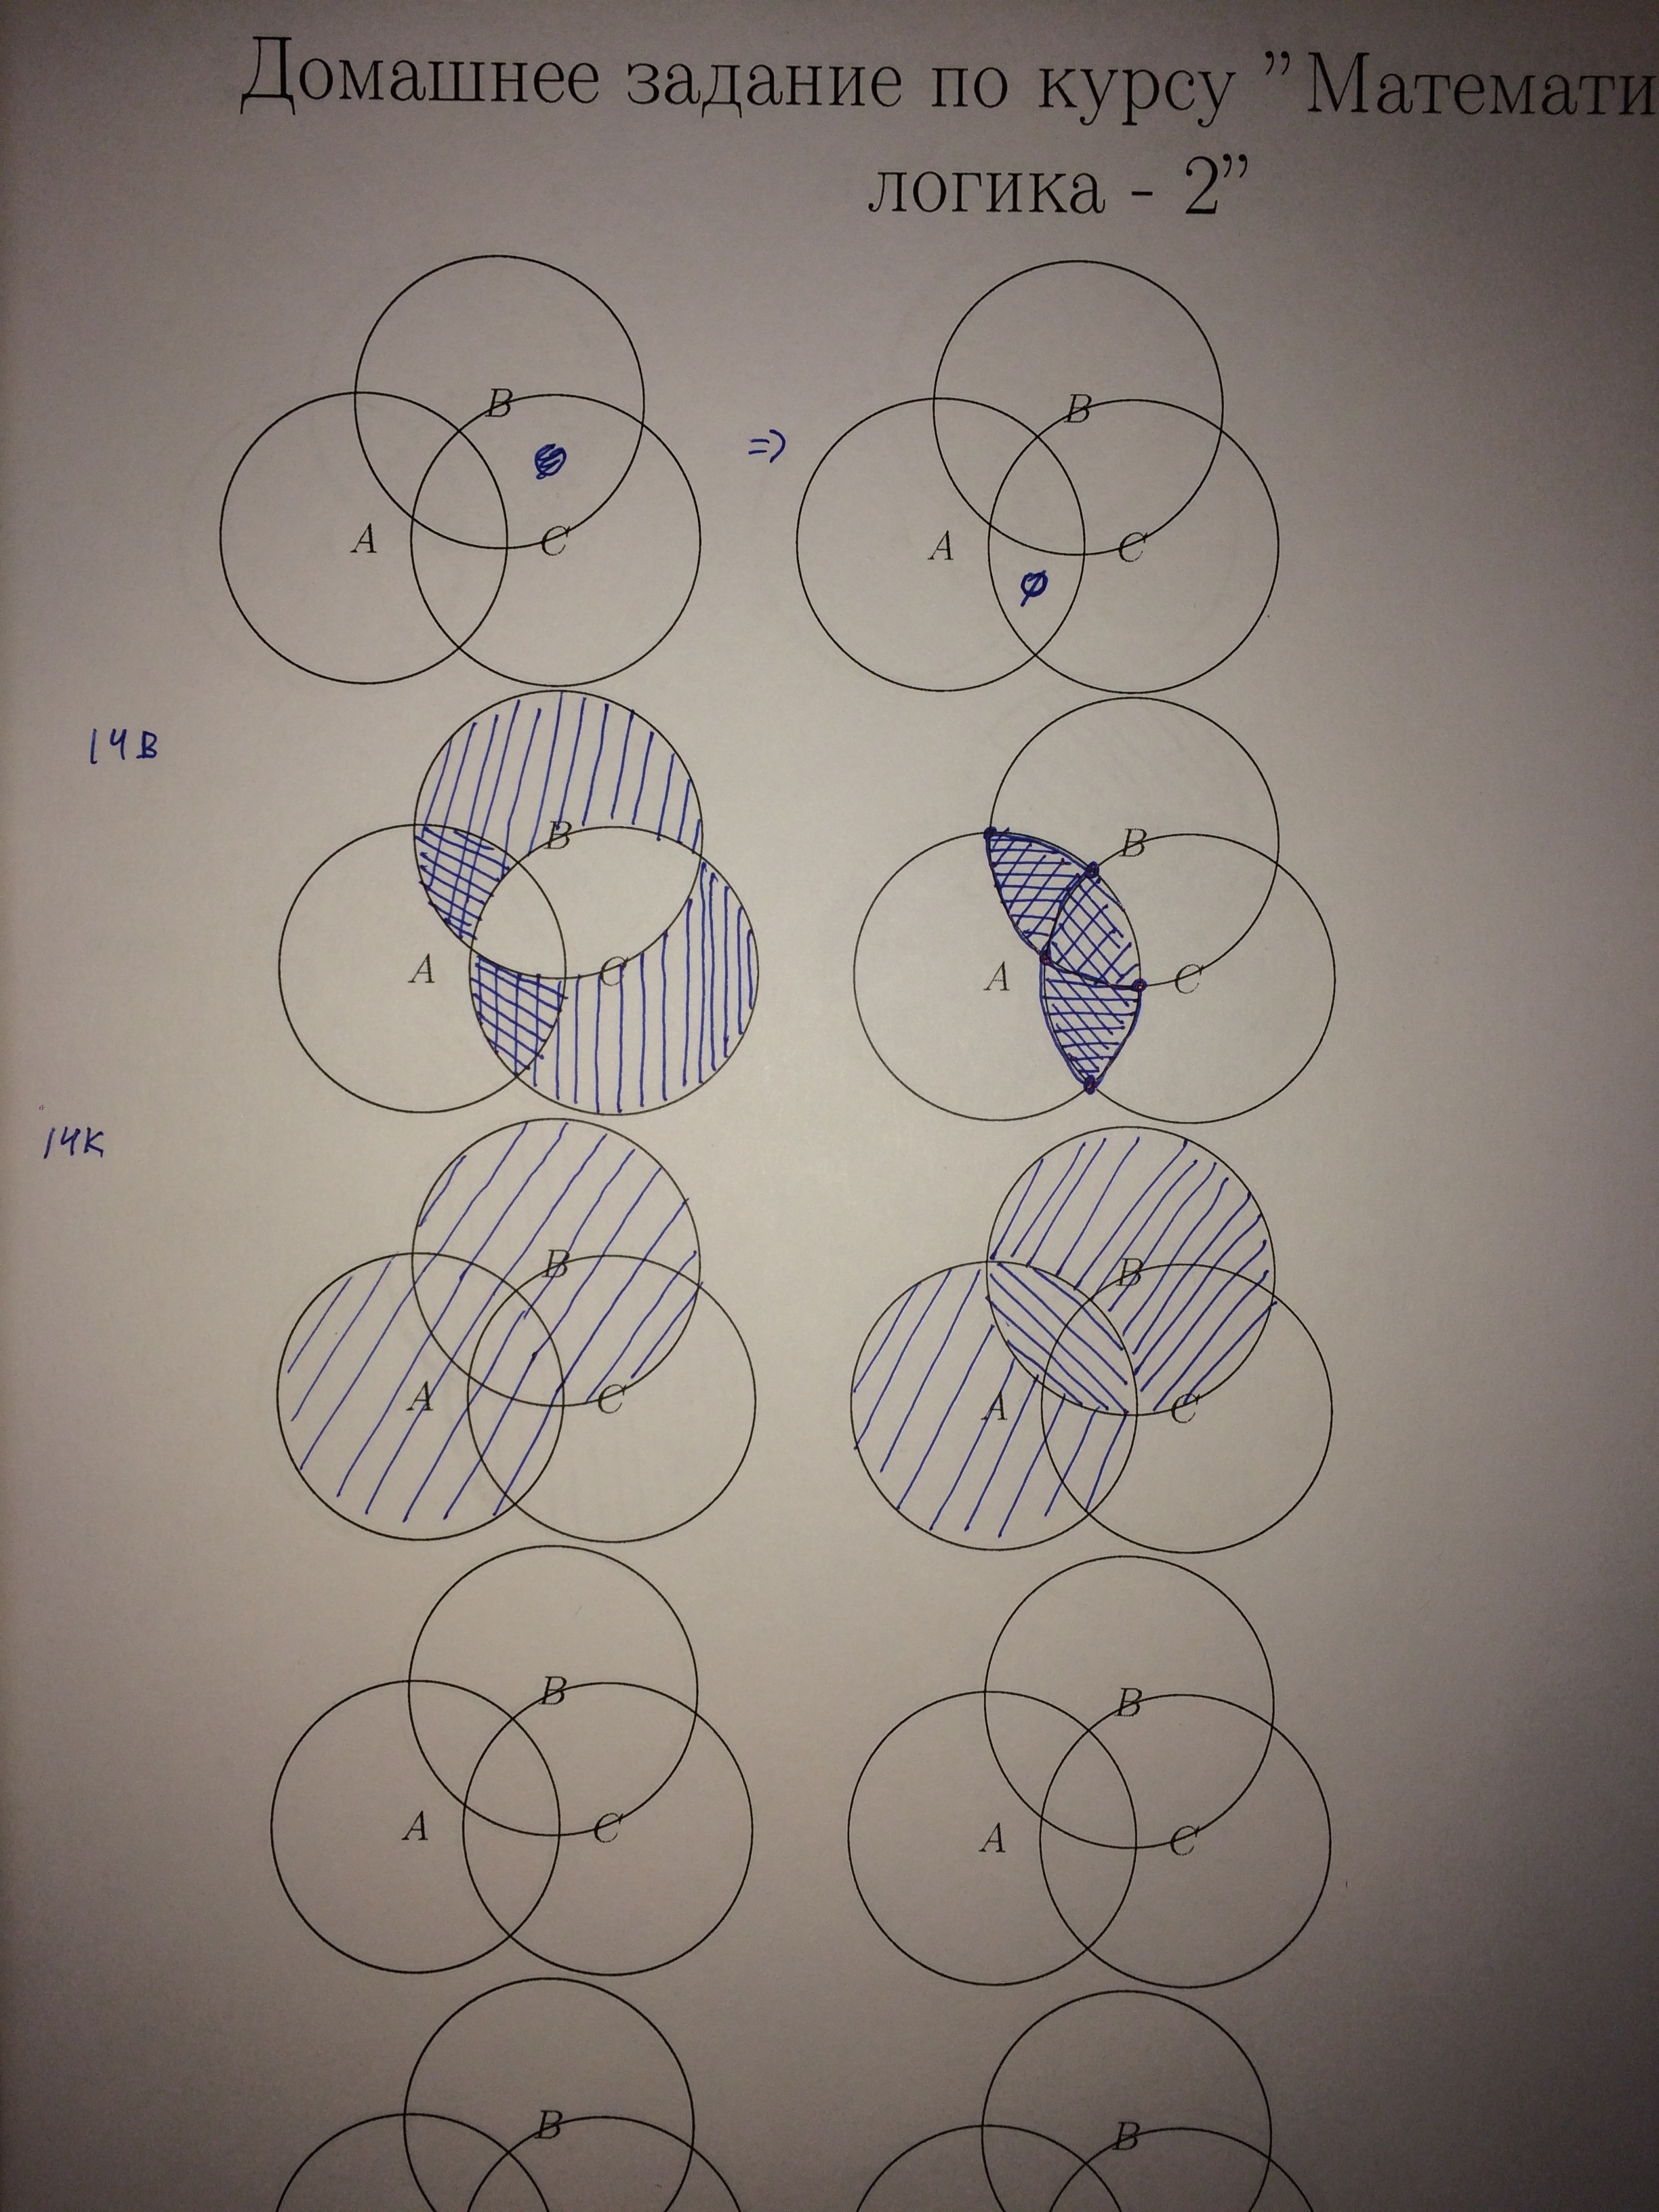 Домашнее задание по курсу ” Математи
логика - 2”
B B
⇒
A C A C
∅
14В
B B
A C A C
14К
B B
A C A C
B B
A C A C
B B